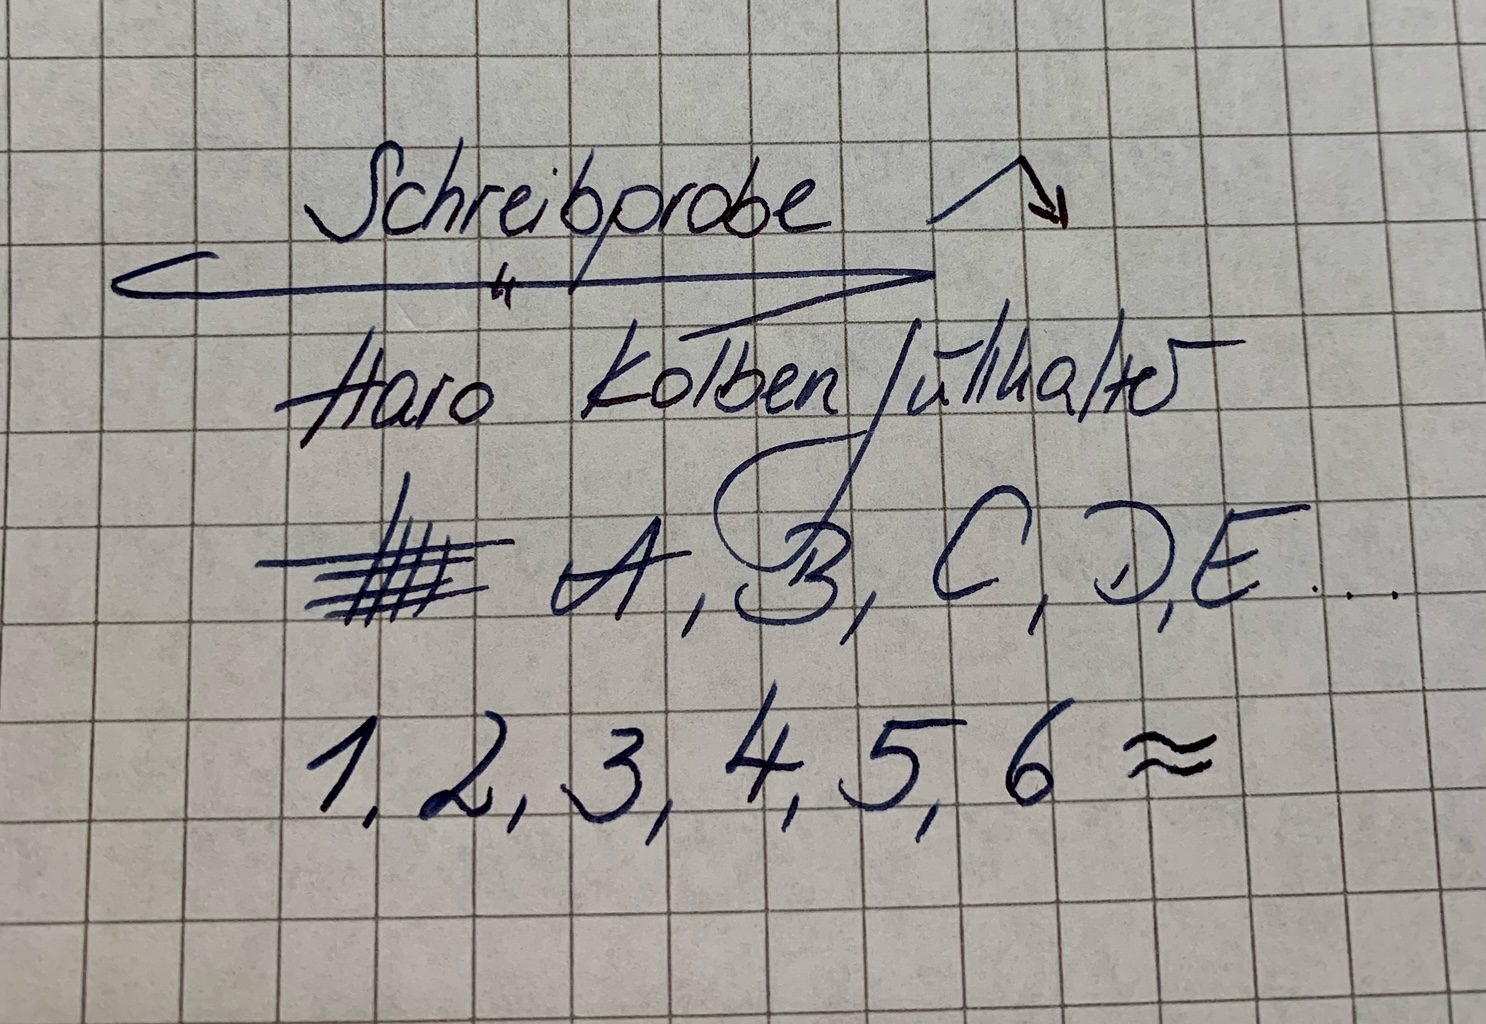 Schreibprobe
Haro Kolbenfüllhalter
A, B, C, D, E ...
1, 2, 3, 4, 5, 6 ≈